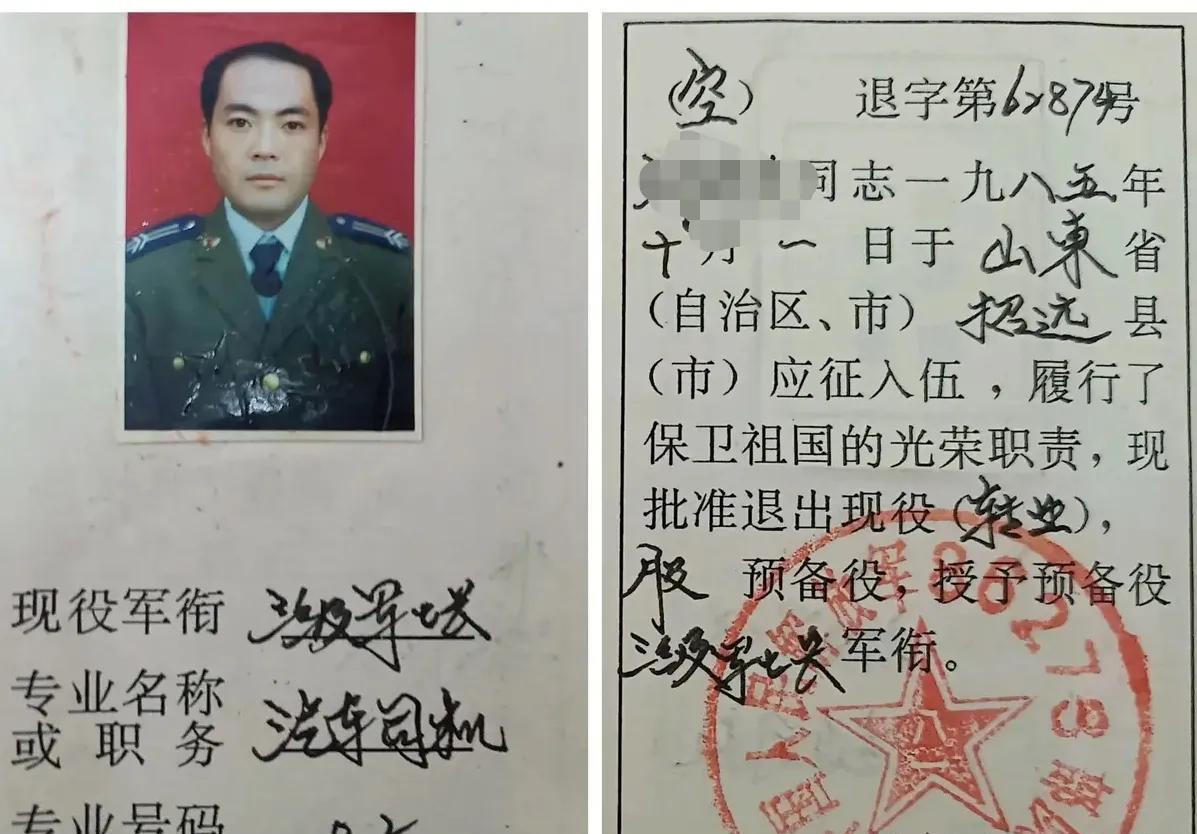 现役军衔 三级军士长
专业名称
或职务 汽车司机
专业号码
(空) 退字第62874号
同志一九八五年
十月一日于山東省
(自治区、市)招远县
(市)应征入伍,履行了
保卫祖国的光荣职责,现
批准退出现役(转业),
服预备役,授予预备役
三级军士长军衔。